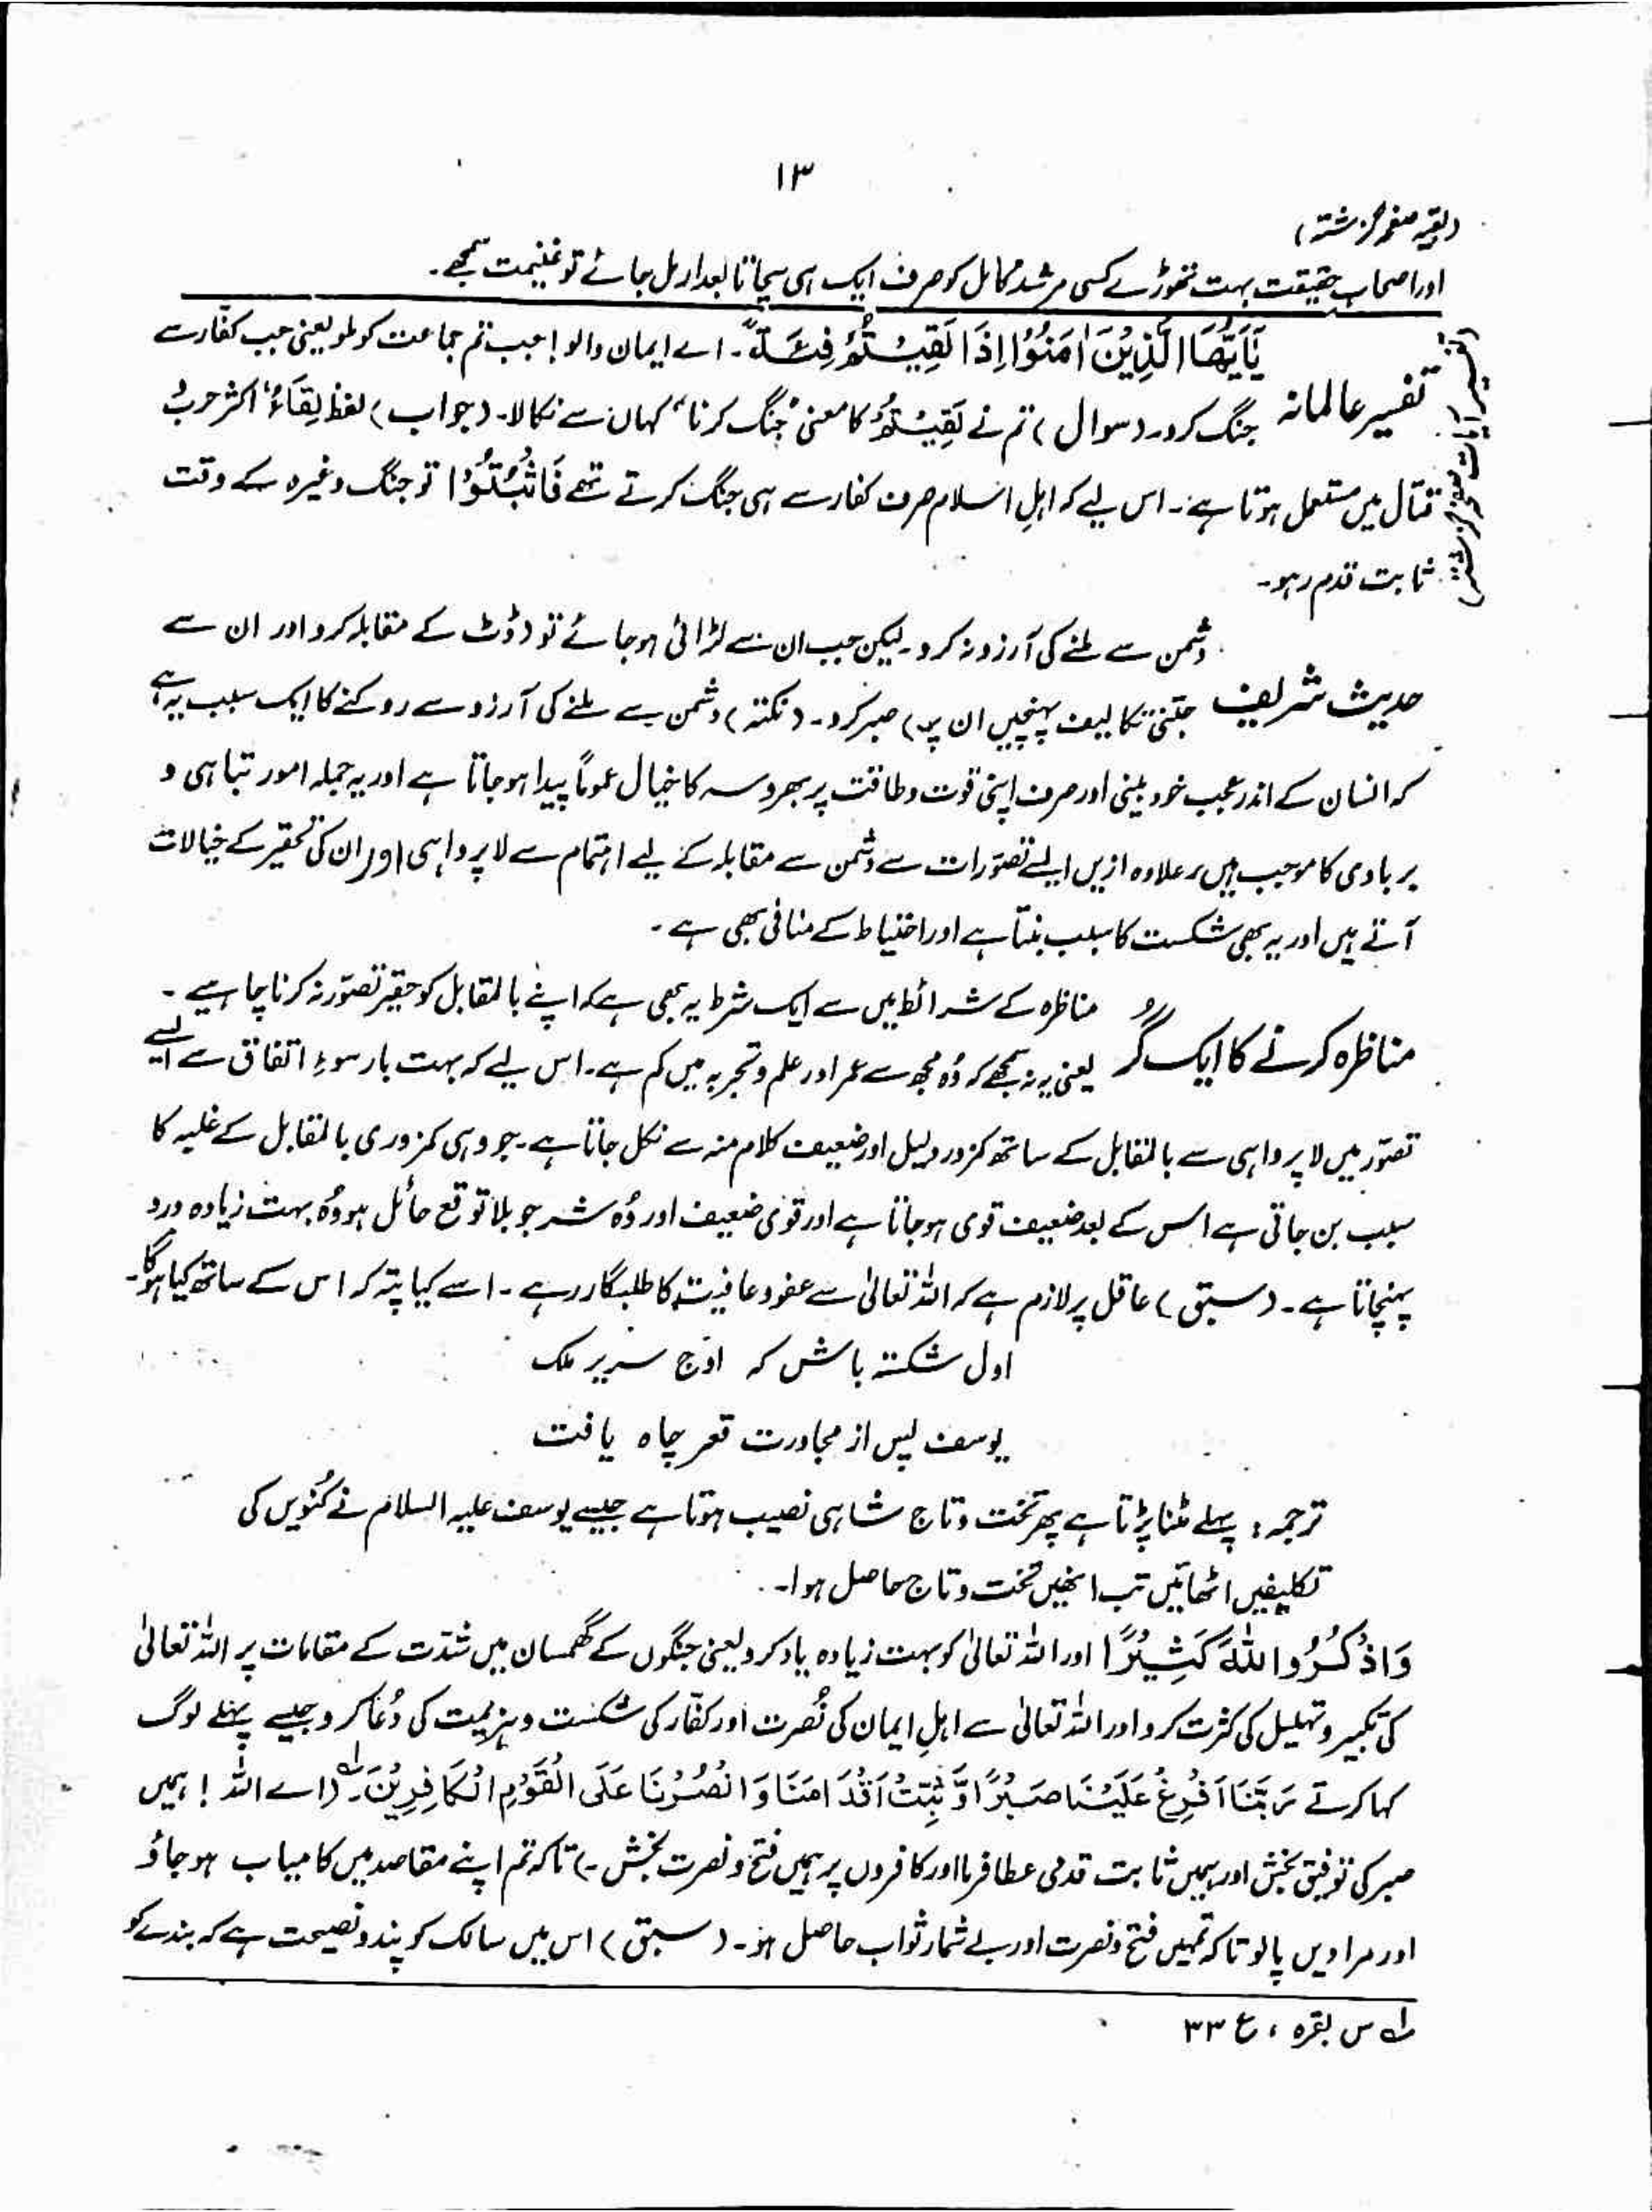 ۱۳
(بقیہ صفحہ گزشتہ)
اور اصحابِ حقیقت بہت تھوڑے کسی مرشد کامل کو صرف ایک ہی سچا تابعدار مل جائے تو غنیمت سمجھے۔
(تفسیر آیات صفحہ گزشتہ)
تفسیر عالمانہ
یٰۤاَیُّهَا الَّذِیْنَ اٰمَنُوْۤا اِذَا لَقِیْتُمْ فِئَةً۔ اے ایمان والو! جب تم جماعت کو ملو یعنی جب کفار سے
جنگ کرو۔ (سوال) تم نے لَقِیْتُمْ کا معنی "جنگ کرنا" کہاں سے نکالا۔ (جواب) لفظ لِقَاءُ، اکثر حرب و
قتال میں مستعمل ہوتا ہے۔ اس لیے کہ اہلِ اسلام صرف کفار سے ہی جنگ کرتے تھے فَاثْبُتُوْا تو جنگ وغیرہ کے وقت
ثابت قدم رہو۔
حدیث شریف
دشمن سے ملنے کی آرزو نہ کرو۔ لیکن جب ان سے لڑائی ہو جائے تو (ڈٹ کے مقابلہ کرو اور ان سے
جتنی تکالیف پہنچیں ان پر) صبر کرو۔ (نکتہ) دشمن سے ملنے کی آرزو سے روکنے کا ایک سبب یہ ہے
کہ انسان کے اندر عجب خود بینی اور صرف اپنی قوت و طاقت پر بھروسہ کا خیال عموماً پیدا ہو جاتا ہے اور یہ جملہ امور تباہی و
بربادی کا موجب ہیں، علاوہ ازیں ایسے تصورات سے دشمن سے مقابلہ کے لیے اہتمام سے لاپرواہی اور ان کی تحقیر کے خیالات
آتے ہیں اور یہ بھی شکست کا سبب بنتا ہے اور احتیاط کے منافی بھی ہے۔
مناظرہ کرنے کا ایک گُر
مناظرہ کے شرائط میں سے ایک شرط یہ بھی ہے کہ اپنے بالمقابل کو حقیر تصور نہ کرنا چاہیے۔
یعنی یہ نہ سمجھے کہ وُہ مجھ سے عمر اور علم و تجربہ میں کم ہے۔ اس لیے کہ بہت بار سوءِ اتفاق سے ایسے
تصور میں لاپرواہی سے بالمقابل کے ساتھ کمزور دلیل اور ضعیف کلام منہ سے نکل جاتا ہے۔ جو وہی کمزوری بالمقابل کے غلبہ کا
سبب بن جاتی ہے اس کے بعد ضعیف قوی ہو جاتا ہے اور قوی ضعیف اور وُہ شر جو بلا توقع حائل ہو وُہ بہت زیادہ درد
پہنچاتا ہے۔ (سبق) عاقل پر لازم ہے کہ اللہ تعالیٰ سے عفو و عافیت کا طلبگار رہے۔ اسے کیا پتہ کہ اس کے ساتھ کیا ہوگا۔
اول شکستہ باش کہ اوج سریر ملک
یوسف پس از مجاورت قعر چاہ یافت
ترجمہ: پہلے مٹنا پڑتا ہے پھر تخت و تاج شاہی نصیب ہوتا ہے جیسے یوسف علیہ السلام نے کنُویں کی
تکلیفیں اٹھائیں تب انھیں تخت و تاج حاصل ہوا۔
وَاذْكُرُوا اللّٰهَ كَثِیْرًا اور اللہ تعالیٰ کو بہت زیادہ یاد کرو یعنی جنگوں کے گھمسان میں شدت کے مقامات پر اللہ تعالیٰ
کی تکبیر و تہلیل کی کثرت کرو اور اللہ تعالیٰ سے اہلِ ایمان کی نُصرت اور کفّار کی شکست و ہزیمت کی دُعا کرو جیسے پہلے لوگ
کہا کرتے رَبَّنَا اَفْرِغْ عَلَیْنَا صَبْرًا وَّ ثَبِّتْ اَقْدَامَنَا وَانْصُرْنَا عَلَی الْقَوْمِ الْكَافِرِیْنَ۔ لہ (اے اللہ! ہمیں
صبر کی توفیق بخش اور ہمیں ثابت قدمی عطا فرما اور کافروں پر ہمیں فتح و نصرت بخش۔) تاکہ تم اپنے مقاصد میں کامیاب ہو جاؤ
اور مرادیں پالو تاکہ تمہیں فتح و نصرت اور بے شمار ثواب حاصل ہو۔ (سبق) اس میں سالک کو پند و نصیحت ہے کہ بندے کو
لہ س بقرہ ، ع ۳۳